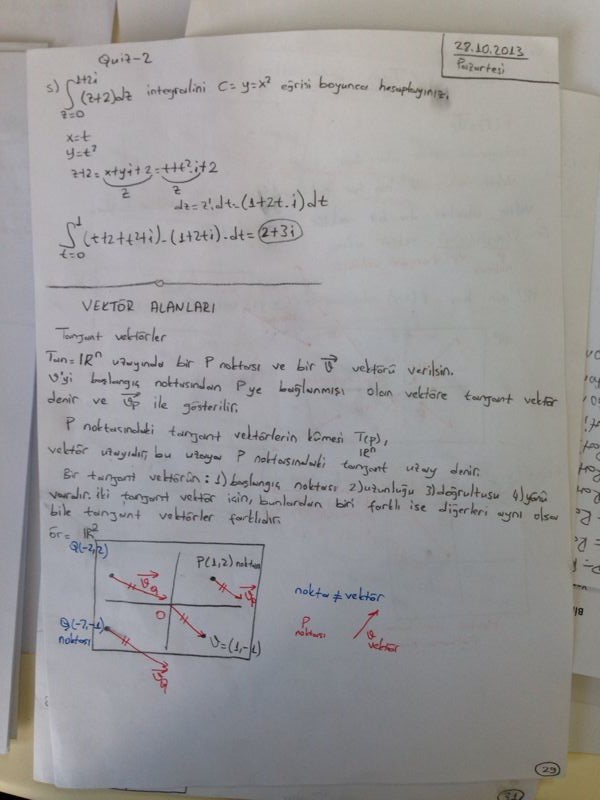 28.10.2013
Pazartesi
Quiz-2
s) ∫ z=0 1+2i (z+2)dz integralini C=y=x² eğrisi boyunca hesaplayınız.
x=t
y=t²
z+2= x+yi+2 = t+t².i+2
z z
dz=z'.dt=(1+2t.i)dt
∫ t=0 1 (t+2+t²i).(1+2ti).dt= 2+3i
VEKTÖR ALANLARI
Tanjant vektörler
Tan= IRⁿ uzayında bir P noktası ve bir v⃗ vektörü verilsin.
v'yi başlangıç noktasından P ye bağlanmışı olan vektöre tanjant vektör
denir ve v⃗p ile gösterilir.
P noktasındaki tanjant vektörlerin kümesi T(p),
IRⁿ
vektör uzayıdır, bu uzaya P noktasındaki tanjant uzay denir.
Bir tanjant vektörün: 1) başlangıç noktası 2) uzunluğu 3) doğrultusu 4) yönü
vardır. iki tanjant vektör için, bunlardan biri farklı ise diğerleri aynı olsa
bile tanjant vektörler farklıdır.
ör= IR²
Q(-2,2)
P(1,2) noktası
v⃗Q
v⃗p
O
Q(-2,-1)
noktası
v⃗=(1,-1)
v⃗Q
nokta ≠ vektör
P
noktası
v
vektör
29
31